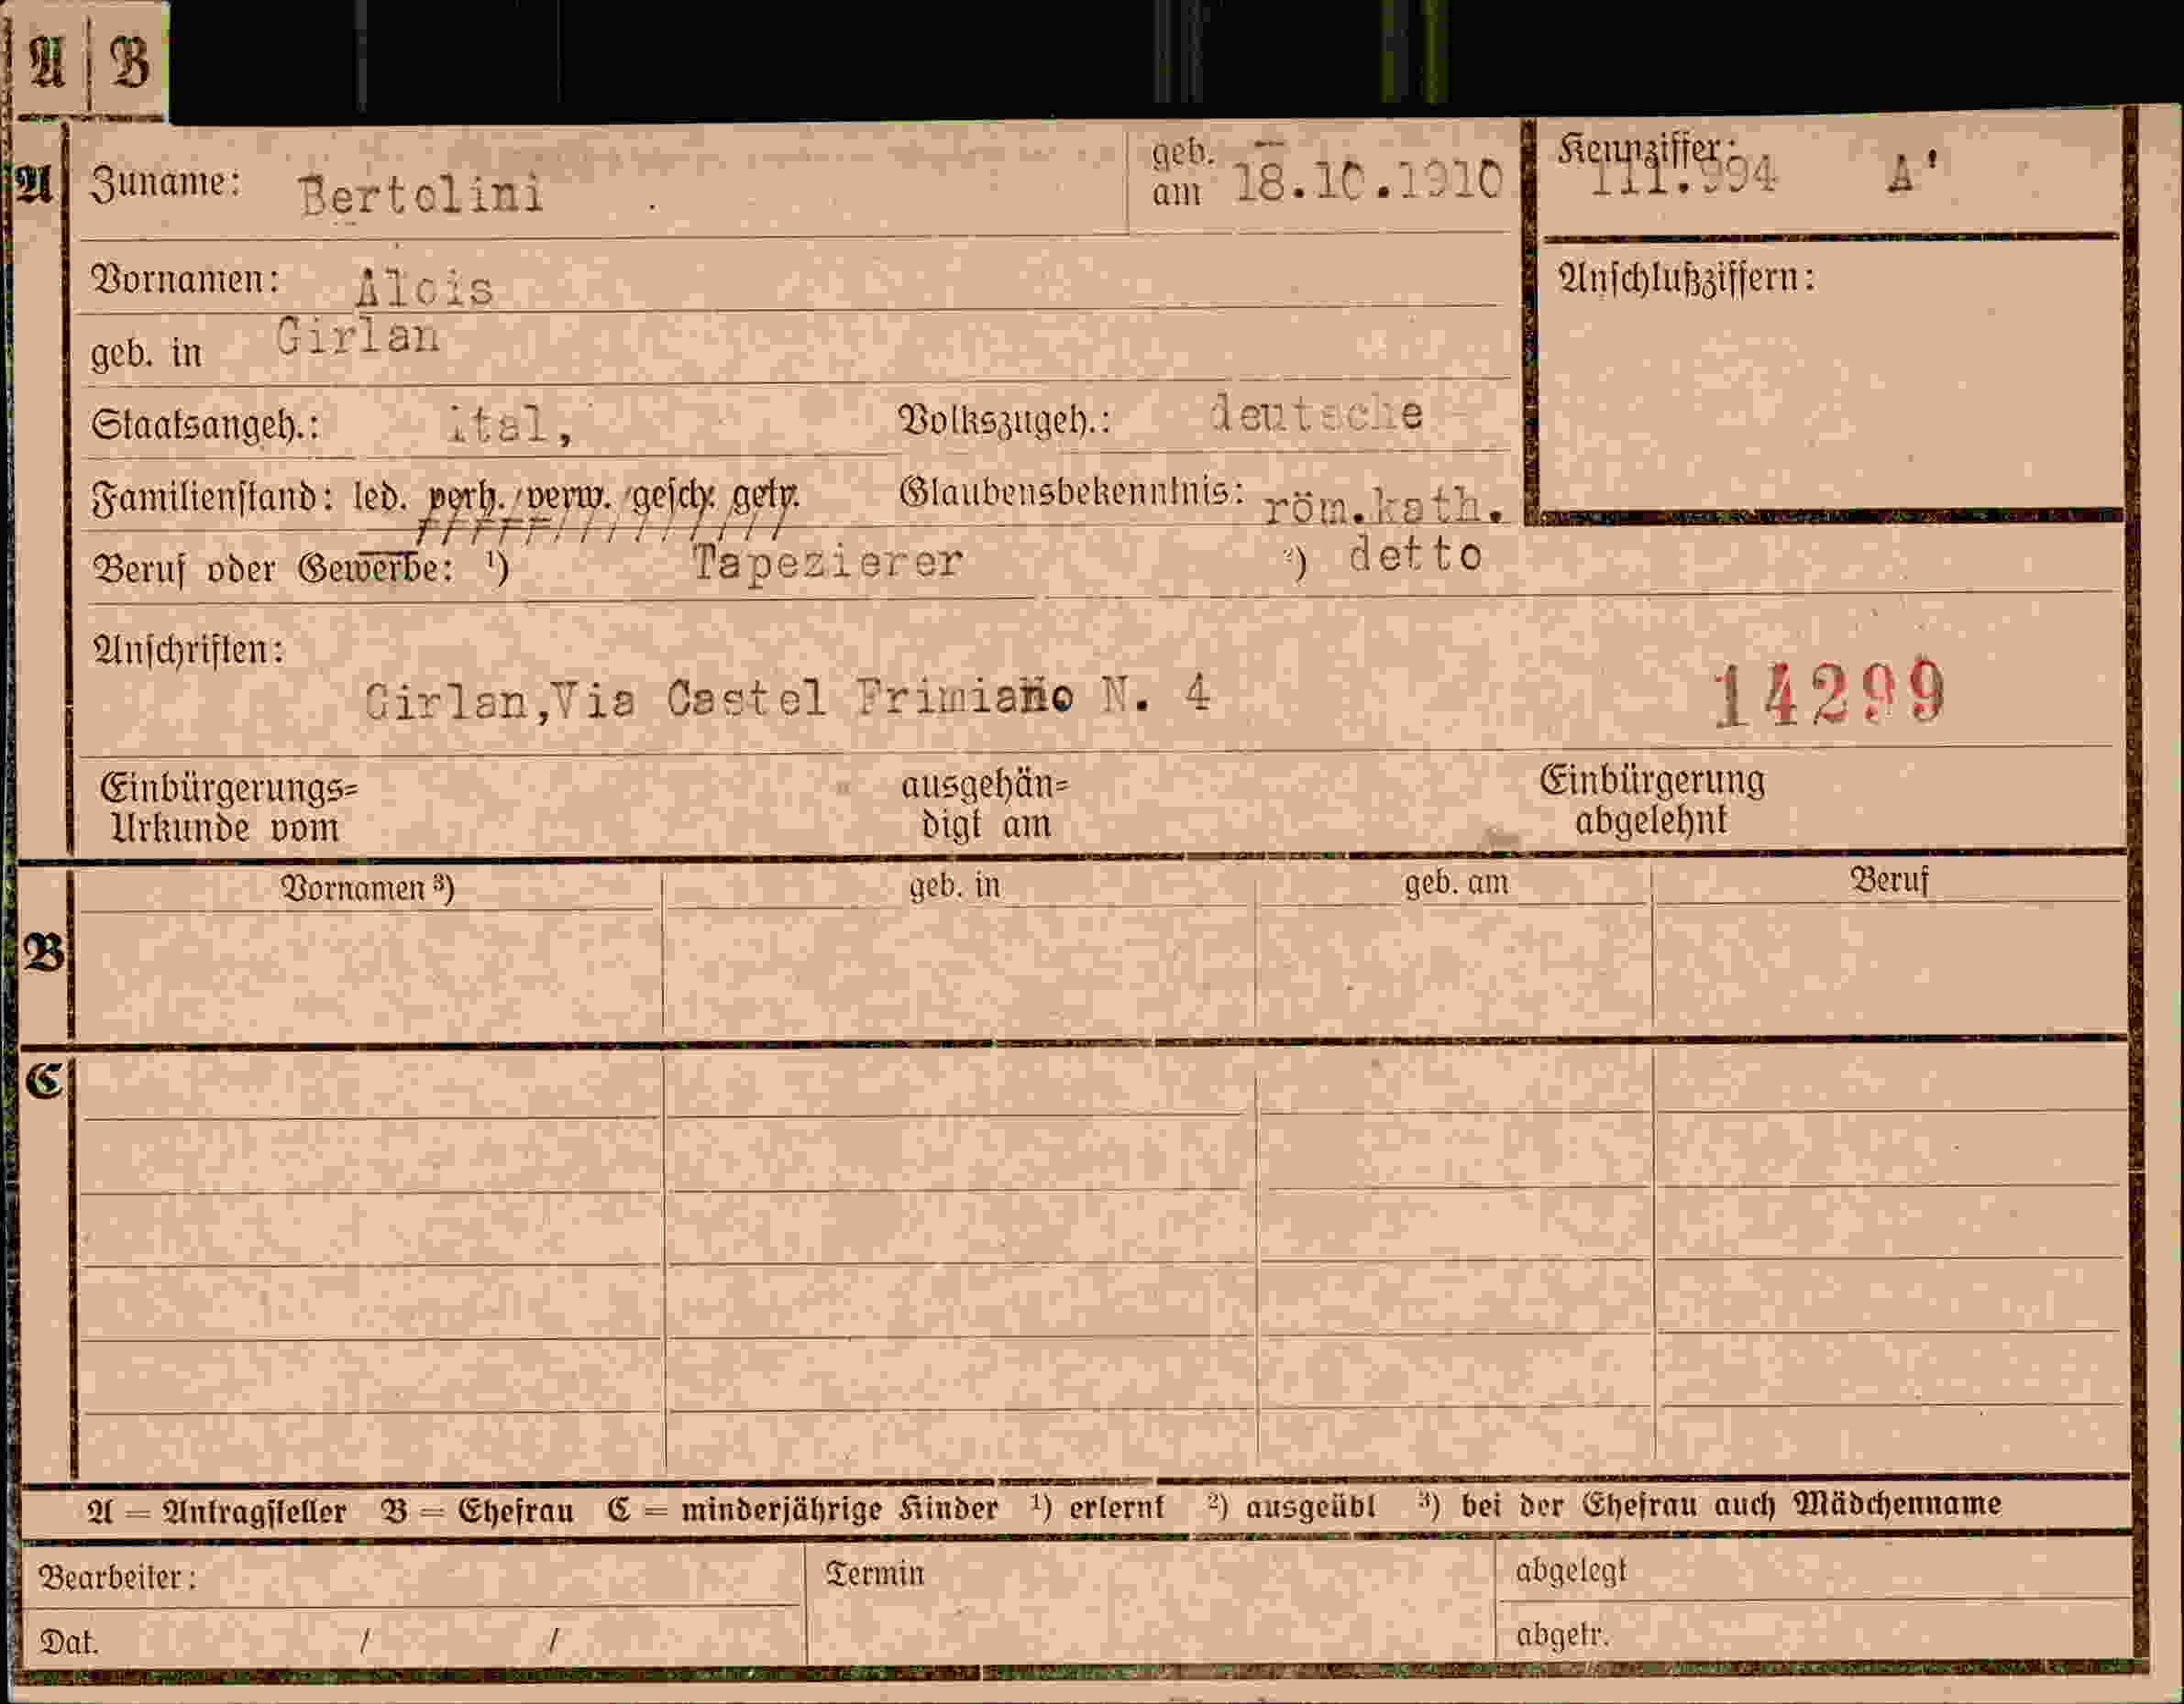 A B
A Zuname: Bertolini geb. am 18.10.1910 Kennziffer: 111.994 A'
Vornamen: Alois Anschlußziffern:
geb. in Girlan
Staatsangeh.: ital, Volkszugeh.: deutsche
Familienstand: led. verh. verw. gesch. getr. Glaubensbekenntnis: röm.kath.
Beruf oder Gewerbe: ¹) Tapezierer ²) detto
Anschriften:
Girlan,Via Castel Frimiano N. 4 14299
Einbürgerungs= ausgehän= Einbürgerung
Urkunde vom digt am abgelehnt
Vornamen ³) geb. in geb. am Beruf
B
C
A = Antragsteller B = Ehefrau C = minderjährige Kinder ¹) erlernt ²) ausgeübt ³) bei der Ehefrau auch Mädchenname
Bearbeiter: Termin abgelegt
Dat. / / abgetr.